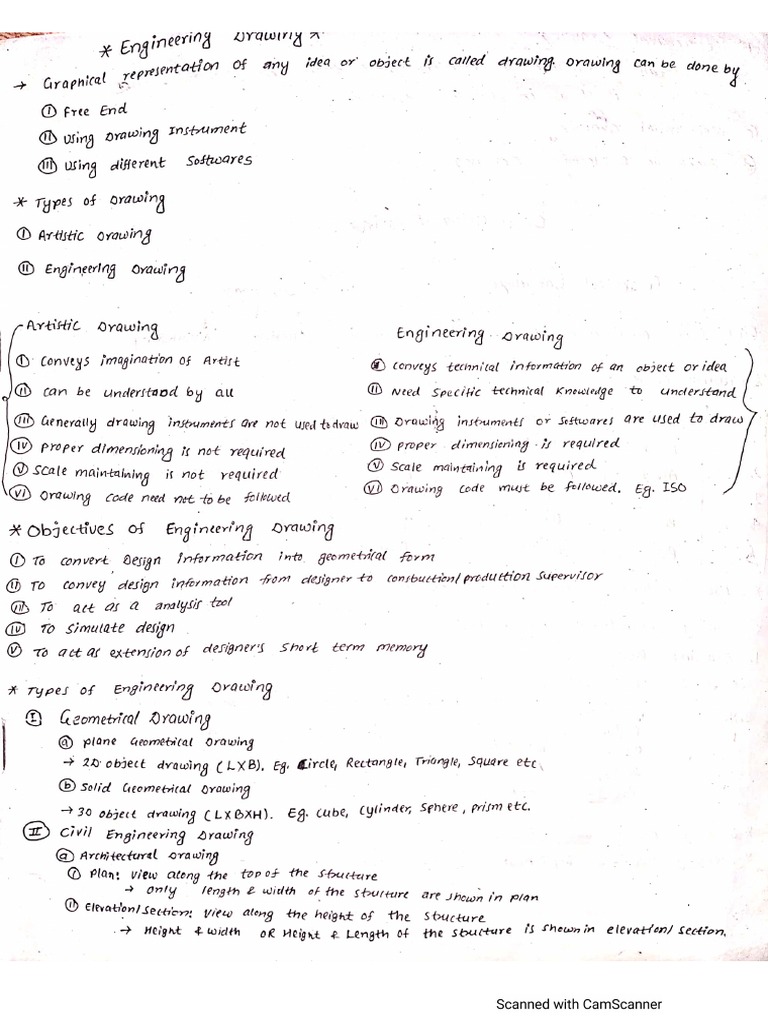 * Engineering Drawing *
→ Graphical representation of any idea or object is called drawing. Drawing can be done by
(i) Free End
(ii) Using Drawing Instrument
(iii) Using different Softwares
* Types of Drawing
(i) Artistic Drawing
(ii) Engineering Drawing
Artistic Drawing
(i) Conveys imagination of Artist
(ii) Can be understood by all
(iii) Generally drawing instruments are not used to draw
(iv) Proper dimensioning is not required
(v) Scale maintaining is not required
(vi) Drawing code need not to be followed
Engineering Drawing
(i) Conveys technical information of an object or idea
(ii) Need Specific technical Knowledge to understand
(iii) Drawing instruments or Softwares are used to draw
(iv) Proper dimensioning is required
(v) Scale maintaining is required
(vi) Drawing code must be followed. Eg. ISO
* Objectives of Engineering Drawing
(i) To convert Design information into geometrical form
(ii) To convey design information from designer to construction/production supervisor
(iii) To act as a analysis tool
(iv) To simulate design
(v) To act as extension of designer's Short term memory
* Types of Engineering Drawing
(I) Geometrical Drawing
(a) Plane Geometrical Drawing
→ 2D object drawing (LXB). Eg. Circle, Rectangle, Triangle, Square etc
(b) Solid Geometrical Drawing
→ 3D object drawing (LXBXH). Eg. Cube, Cylinder, Sphere, prism etc.
(II) Civil Engineering Drawing
(a) Architectural Drawing
(i) Plan: View along the top of the structure
→ only length & width of the structure are shown in plan
(ii) Elevation/Section: View along the height of the structure
→ Height & width OR Height & Length of the structure is shown in elevation/section.
Scanned with CamScanner